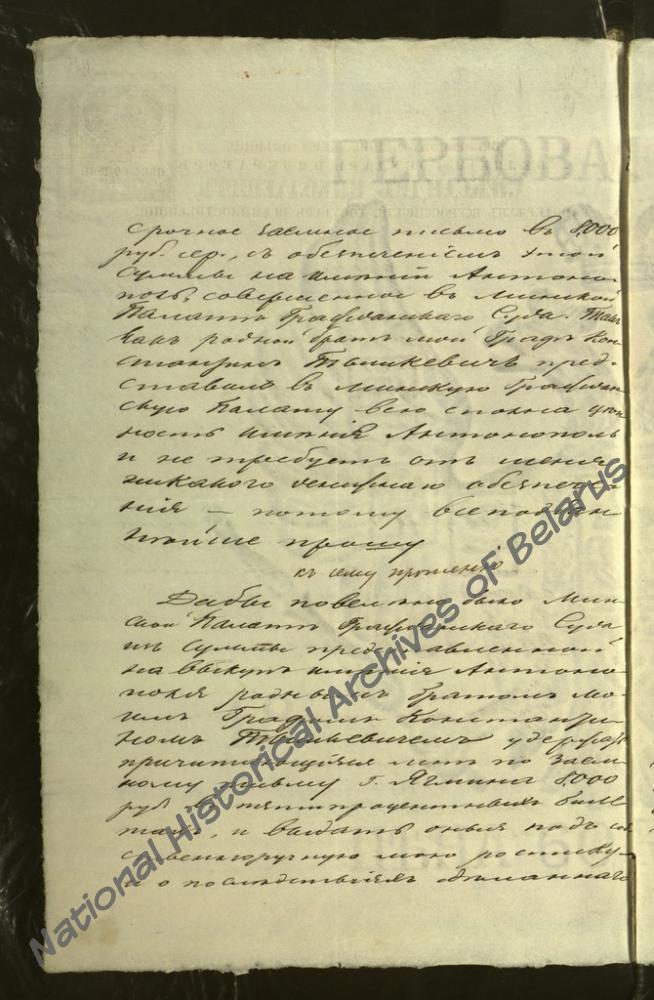 срочное заемное письмо въ 8,000
руб. сер., съ обезпеченіемъ этой
суммы на имѣніи Антоно-
поль, совершенное въ Минской
Палатѣ Гражданскаго Суда. Такъ
какъ родной братъ мой Графъ Кон-
стантинъ Тышкевичъ пред-
ставилъ въ Минскую Граждан-
скую Палату всю сполна цѣн-
ность имѣнія Антонополь
и не требуетъ отъ меня
никакого обезпече-
нія — потому всеподдан-
нѣйше прошу
къ сему прошенію
Дабы повелѣно было Мин-
ской Палатѣ Гражданскаго Суда
изъ суммы представленной
на выкупъ имѣнія Антоно-
поля роднымъ братомъ мо-
имъ Графомъ Константи-
номъ Тышкевичемъ удержать
причитающіяся мнѣ по заем-
ному письму г. 8,000
руб. пятипроцентными биле-
тами, и выдать оныя подъ соб-
ственноручную мою росписку,
и о послѣдствіяхъ
National Historical Archives of Belarus